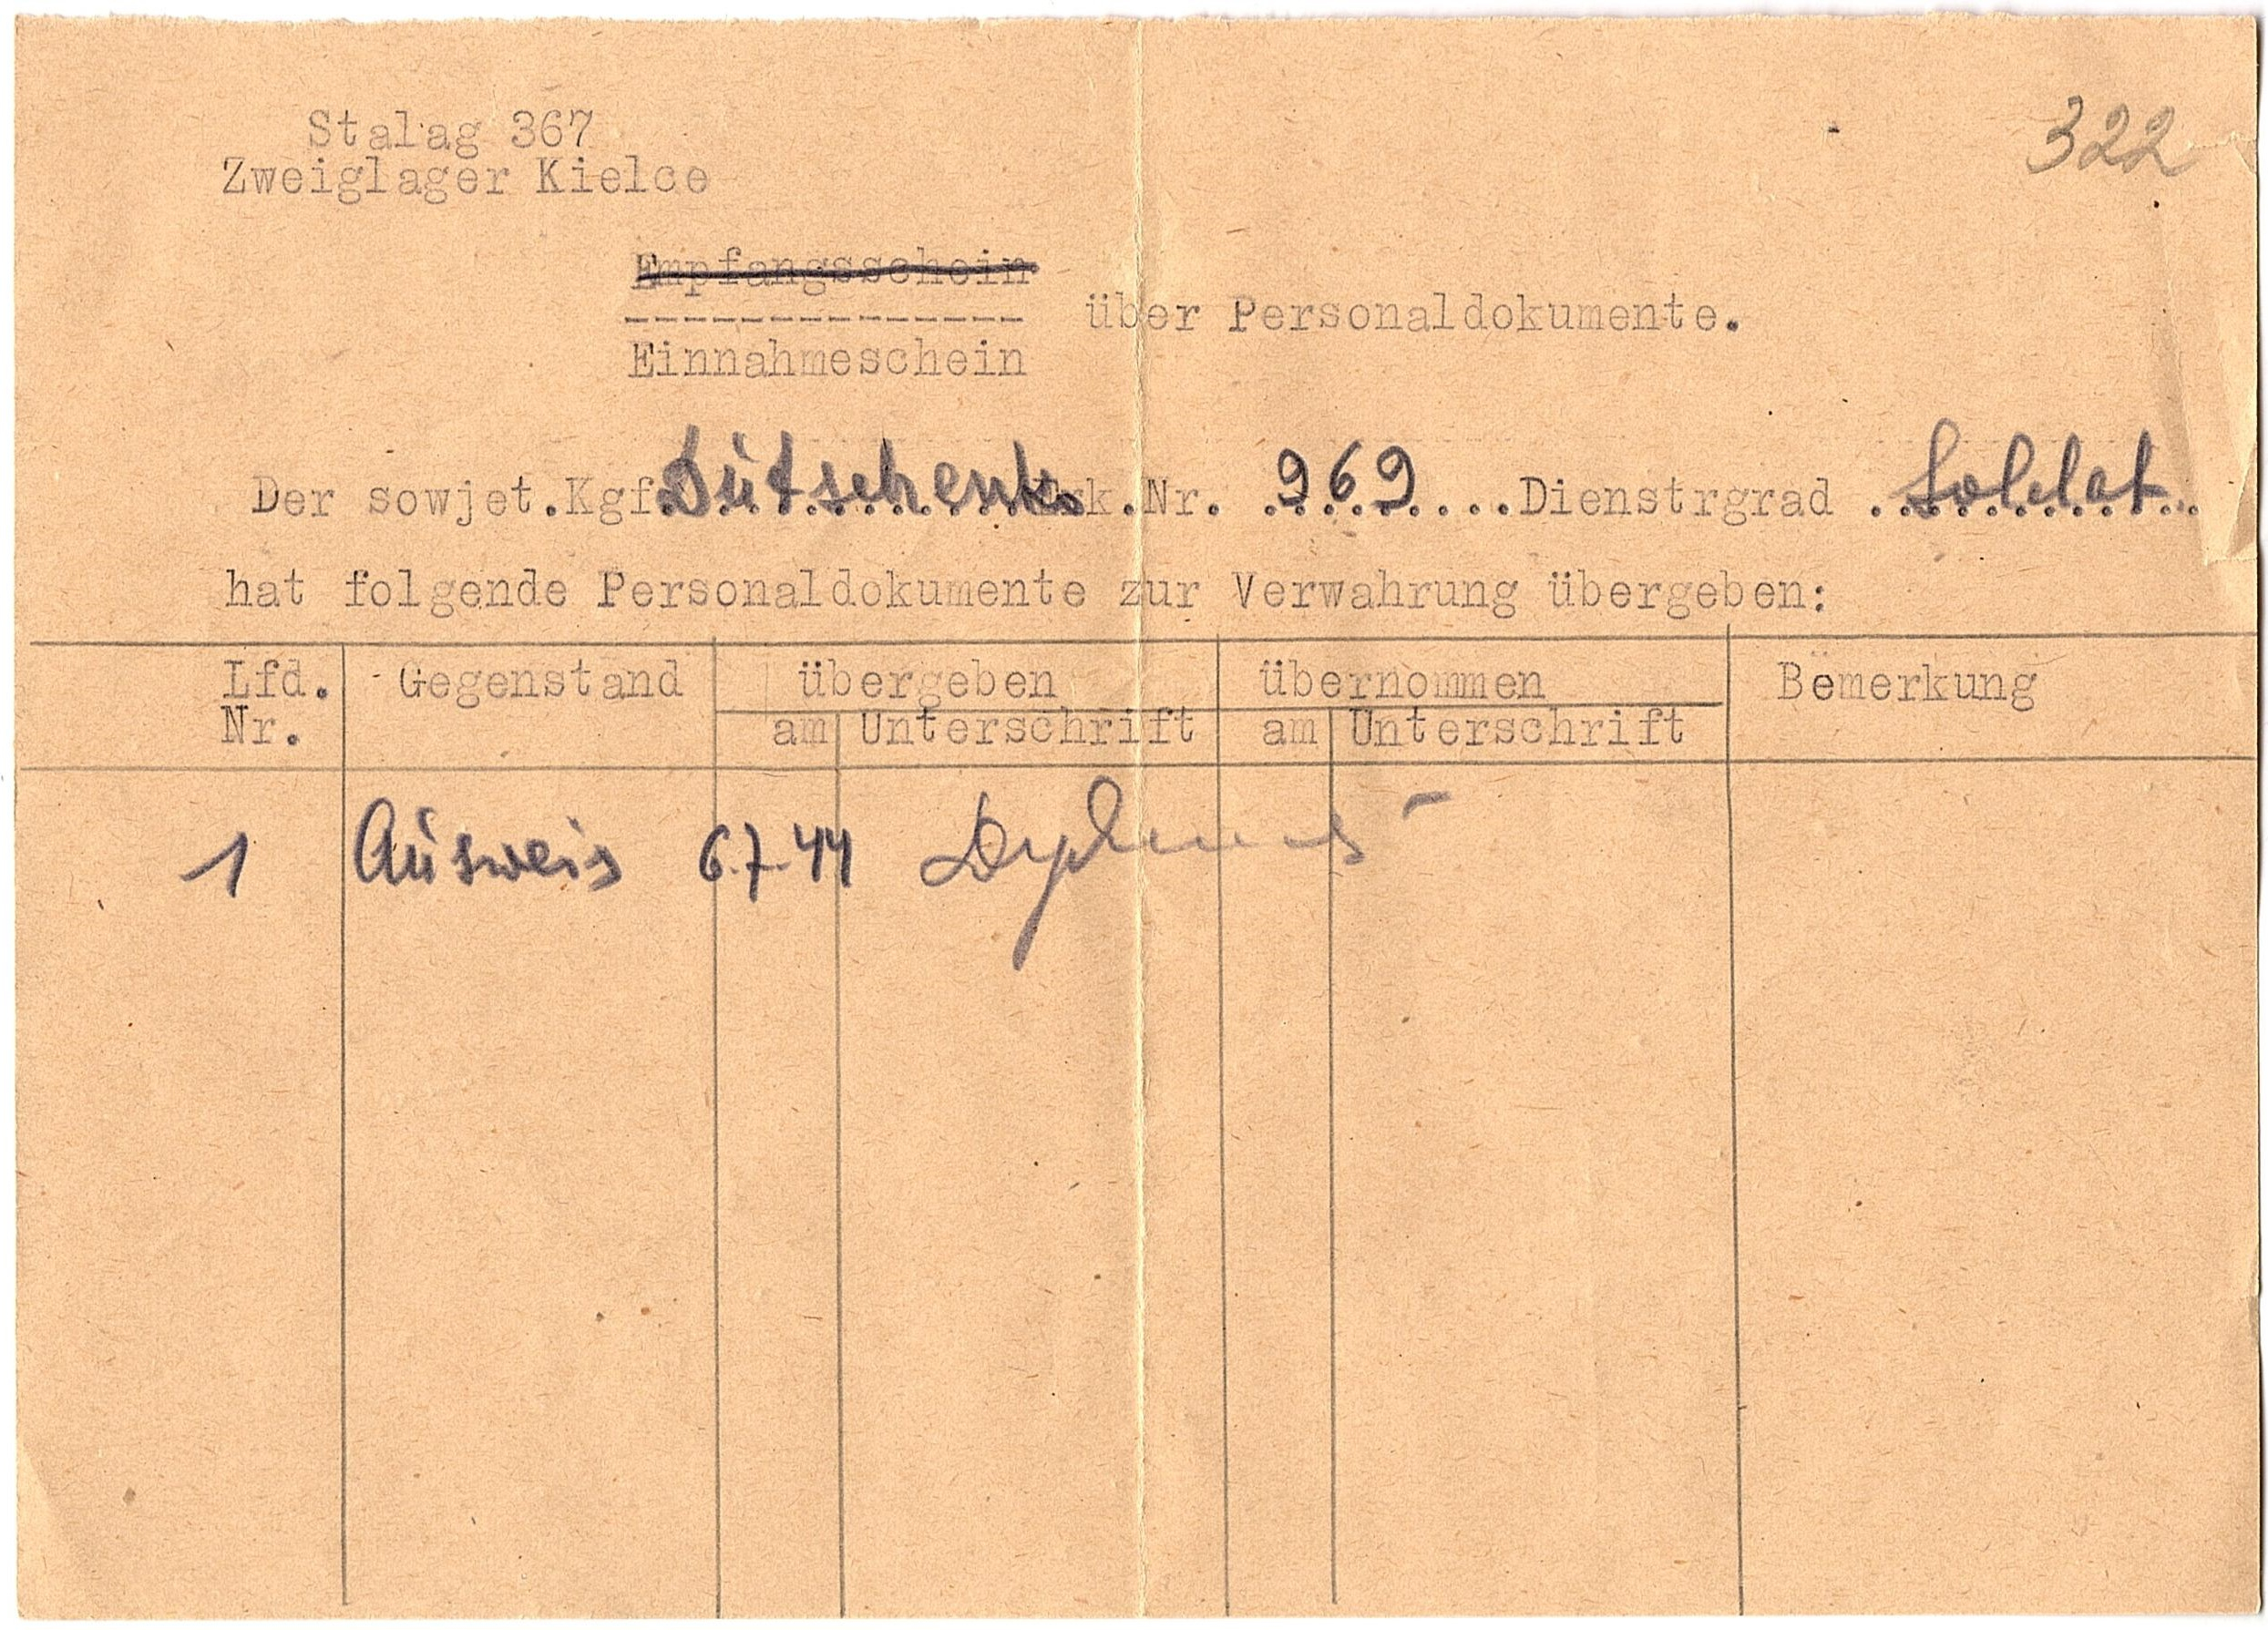 322
Stalag 367
Zweiglager Kielce
Empfangsschein
---------------
über Personaldokumente.
Einnahmeschein
Der sowjet.Kgf. Dutschenko Erk.Nr. 969 ....Dienstrgrad Soldat..
hat folgende Personaldokumente zur Verwahrung übergeben:
Lfd. Gegenstand übergeben übernommen Bemerkung
Nr. am Unterschrift am Unterschrift
1 Ausweis 6.7.44